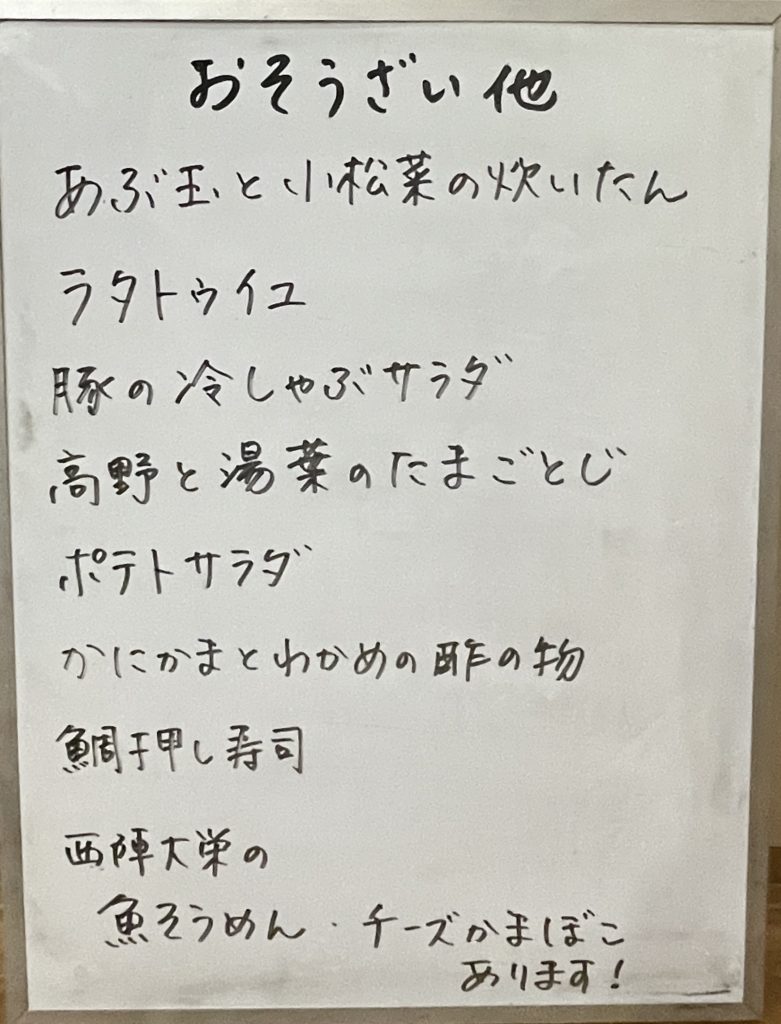 おそうざい他
あぶ玉と小松菜の炊いたん
ラタトゥイユ
豚の冷しゃぶサラダ
高野と湯葉のたまごとじ
ポテトサラダ
かにかまとわかめの酢の物
鯛押し寿司
西陣大栄の
魚そうめん・チーズかまぼこ
あります!